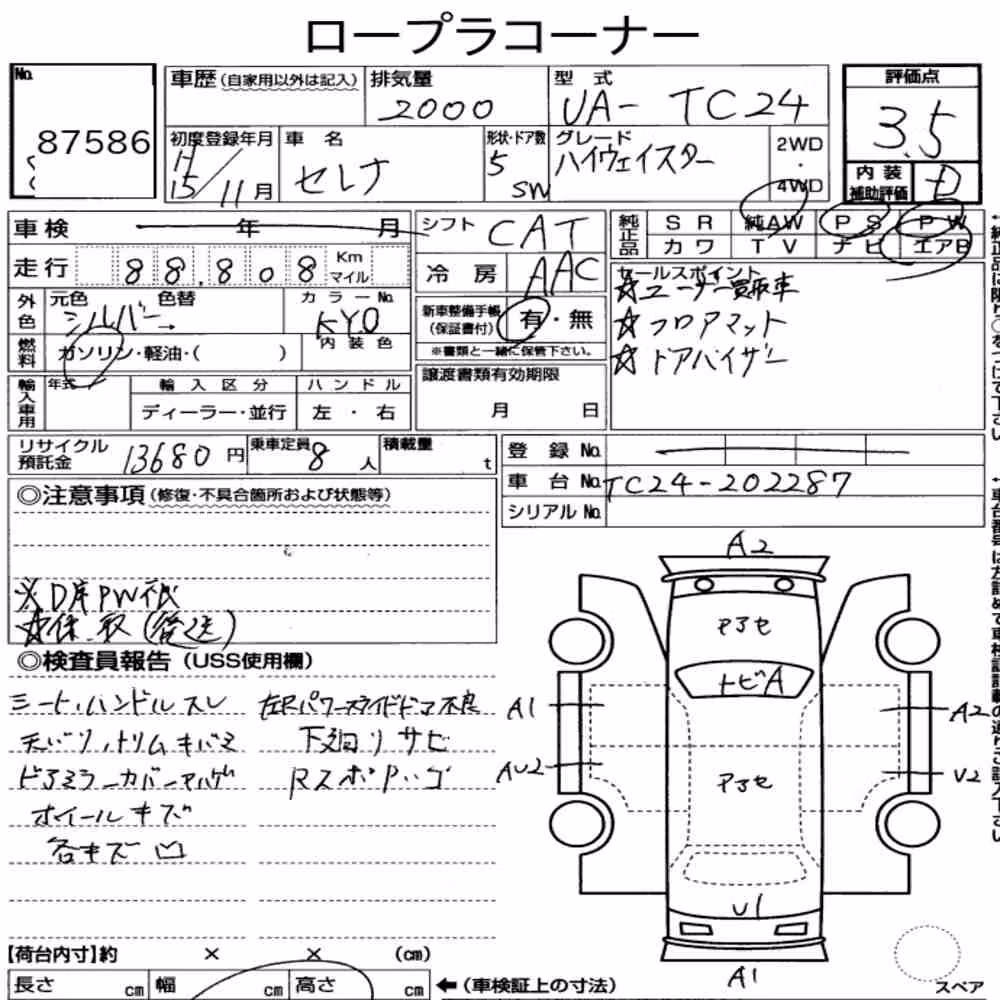 ロープラコーナー
No.
87586
車歴(自家用以外は記入)
排気量
2000
型式
UA- TC24
評価点
3.5
内装
補助評価
D
初度登録年月
15/11月
車名
セレナ
形状・ドア数
5
SW
グレード
ハイウェイスター
2WD
・
4WD
車検 年 月
シフト
CAT
純正品
SR 純AW PS PW
カワ TV ナビ エアB
走行 88,808 Km
マイル
冷房
AAC
セールスポイント
☆ユーザー買取車
☆フロアマット
☆ドアバイザー
外色
元色 色替
シルバー→
カラーNo.
KY0
内装色
新車整備手帳
(保証書付)
有・無
※書類と一緒に保管下さい。
燃料
ガソリン・軽油・( )
輸入車用
年式
輸入区分
ディーラー・並行
ハンドル
左・右
譲渡書類有効期限
月 日
リサイクル
預託金
13680円
乗車定員
8人
積載量
t
登録No.
車台No.
TC24-202287
シリアルNo.
◎注意事項(修復・不具合箇所および状態等)
※D席PW
(後送)
◎検査員報告(USS使用欄)
シート、ハンドルスレ
天バリ、トリムキバミ
ドアミラーカバーハゲ
ホイールキズ
各キズ凹
左Rパワースライドドア不良
下廻りサビ
A2
アセ
トビA
A1
AU2
A2
U2
アセ
U1
A1
【荷台内寸】約 × × (cm)
長さ cm
幅 cm
高さ cm
←(車検証上の寸法)
スペア